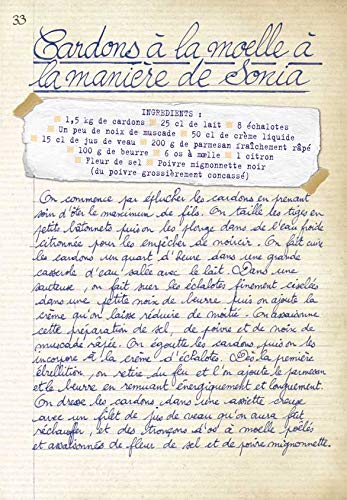 33
Cardons à la moelle à
la manière de Sonia
INGREDIENTS :
1,5 kg de cardons 25 cl de lait 8 échalotes
Un peu de noix de muscade 50 cl de crème liquide
15 cl de jus de veau 200 g de parmesan fraîchement râpé
100 g de beurre 6 os à mœlle 1 citron
Fleur de sel Poivre mignonnette noir
(du poivre grossièrement concassé)
On commence par éplucher les cardons en prenant
soin d'ôter le maximum de fils. On taille les tiges en
petits bâtonnets puis on les plonge dans de l'eau froide
citronnée pour les empêcher de noircir. On fait cuire
les cardons un quart d'heure dans une grande
casserole d'eau salée avec le lait. Dans une
sauteuse, on fait suer les échalotes finement ciselées
dans une petite noix de beurre puis on ajoute la
crème qu'on laisse réduire de moitié. On assaisonne
cette préparation de sel, de poivre et de noix de
muscade râpée. On égoutte les cardons puis on les
incorpore à la crème d'échalotes. Dès la première
ébullition, on retire du feu et l'on ajoute le parmesan
et le beurre en remuant énergiquement et longuement.
On dresse les cardons dans une assiette creuse
avec un filet de jus de veau qu'on aura fait
réchauffer, et des tronçons d'os à moelle poêlés
et assaisonnés de fleur de sel et de poivre mignonnette.